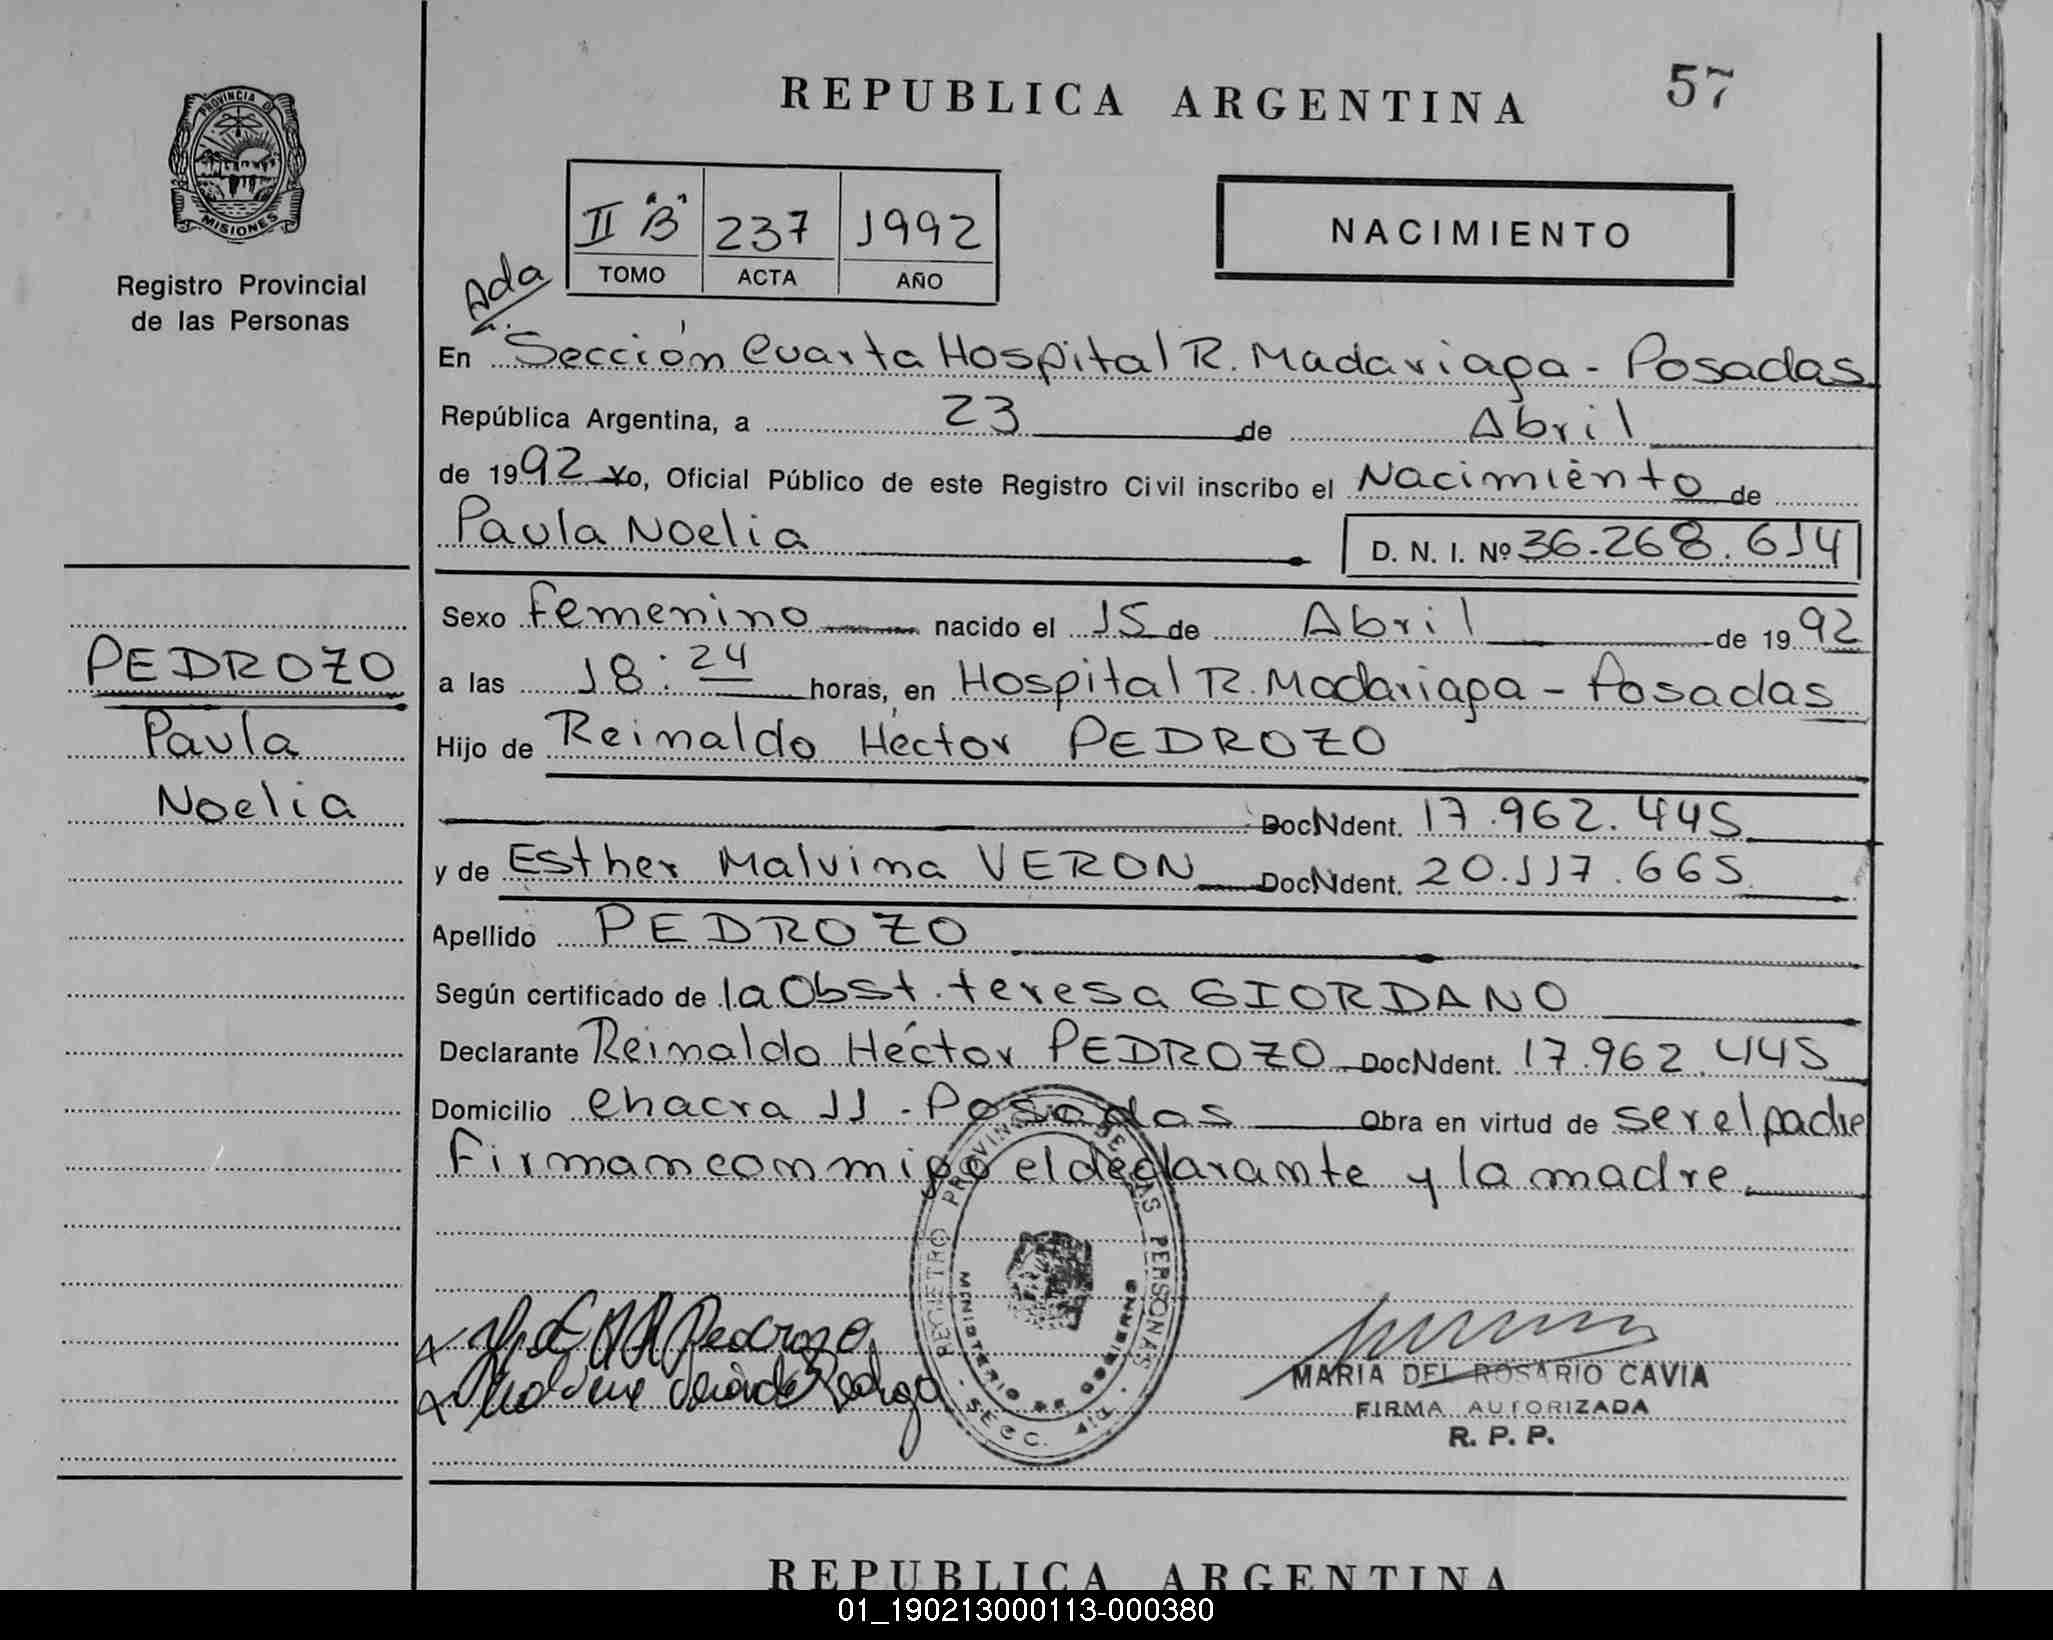 REPUBLICA ARGENTINA
57
PROVINCIA DE
MISIONES
Registro Provincial
de las Personas
II "B" 237 1992
TOMO ACTA AÑO
NACIMIENTO
Ada
En Sección Cuarta Hospital R. Madariaga - Posadas
República Argentina, a 23 de Abril
de 1992 Yo, Oficial Público de este Registro Civil inscribo el Nacimiento de
Paula Noelia D. N. I. Nº 36.268.614
Sexo Femenino nacido el 15 de Abril de 1992
a las 18:24 horas, en Hospital R. Madariaga - Posadas
Hijo de Reinaldo Héctor PEDROZO
Doc. Ident. 17.962.445
y de Esther Malvina VERON Doc. Ident. 20.117.665
Apellido PEDROZO
Según certificado de la Obst. teresa GIORDANO
Declarante Reinaldo Héctor PEDROZO Doc. Ident. 17.962.445
Domicilio Chacra 11 - Posadas Obra en virtud de ser el padre
Firman conmigo el declarante y la madre
PEDROZO
Paula
Noelia
REGISTRO PROVINCIAL DE LAS PERSONAS
MINISTERIO DE GOBIERNO
SECC. 4ta
Pedrozo
MARIA DEL ROSARIO CAVIA
FIRMA AUTORIZADA
R. P. P.
REPUBLICA ARGENTINA
01_190213000113-000380